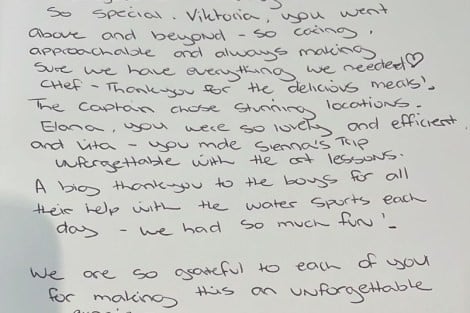 So special. Viktoria, you went
above and beyond - so caring,
approachable and always making
sure we have everything we needed♡
Chef - Thankyou for the delicious meals!
The Captain chose stunning locations.
Elana, you were so lovely and efficient
and Vita - you mde Sienna's Trip
unforgettable with the art lessons.
A big thank-you to the boys for all
their help with the water sports each
day - we had so much fun!
We are so grateful to each of you
for making this an unforgettable